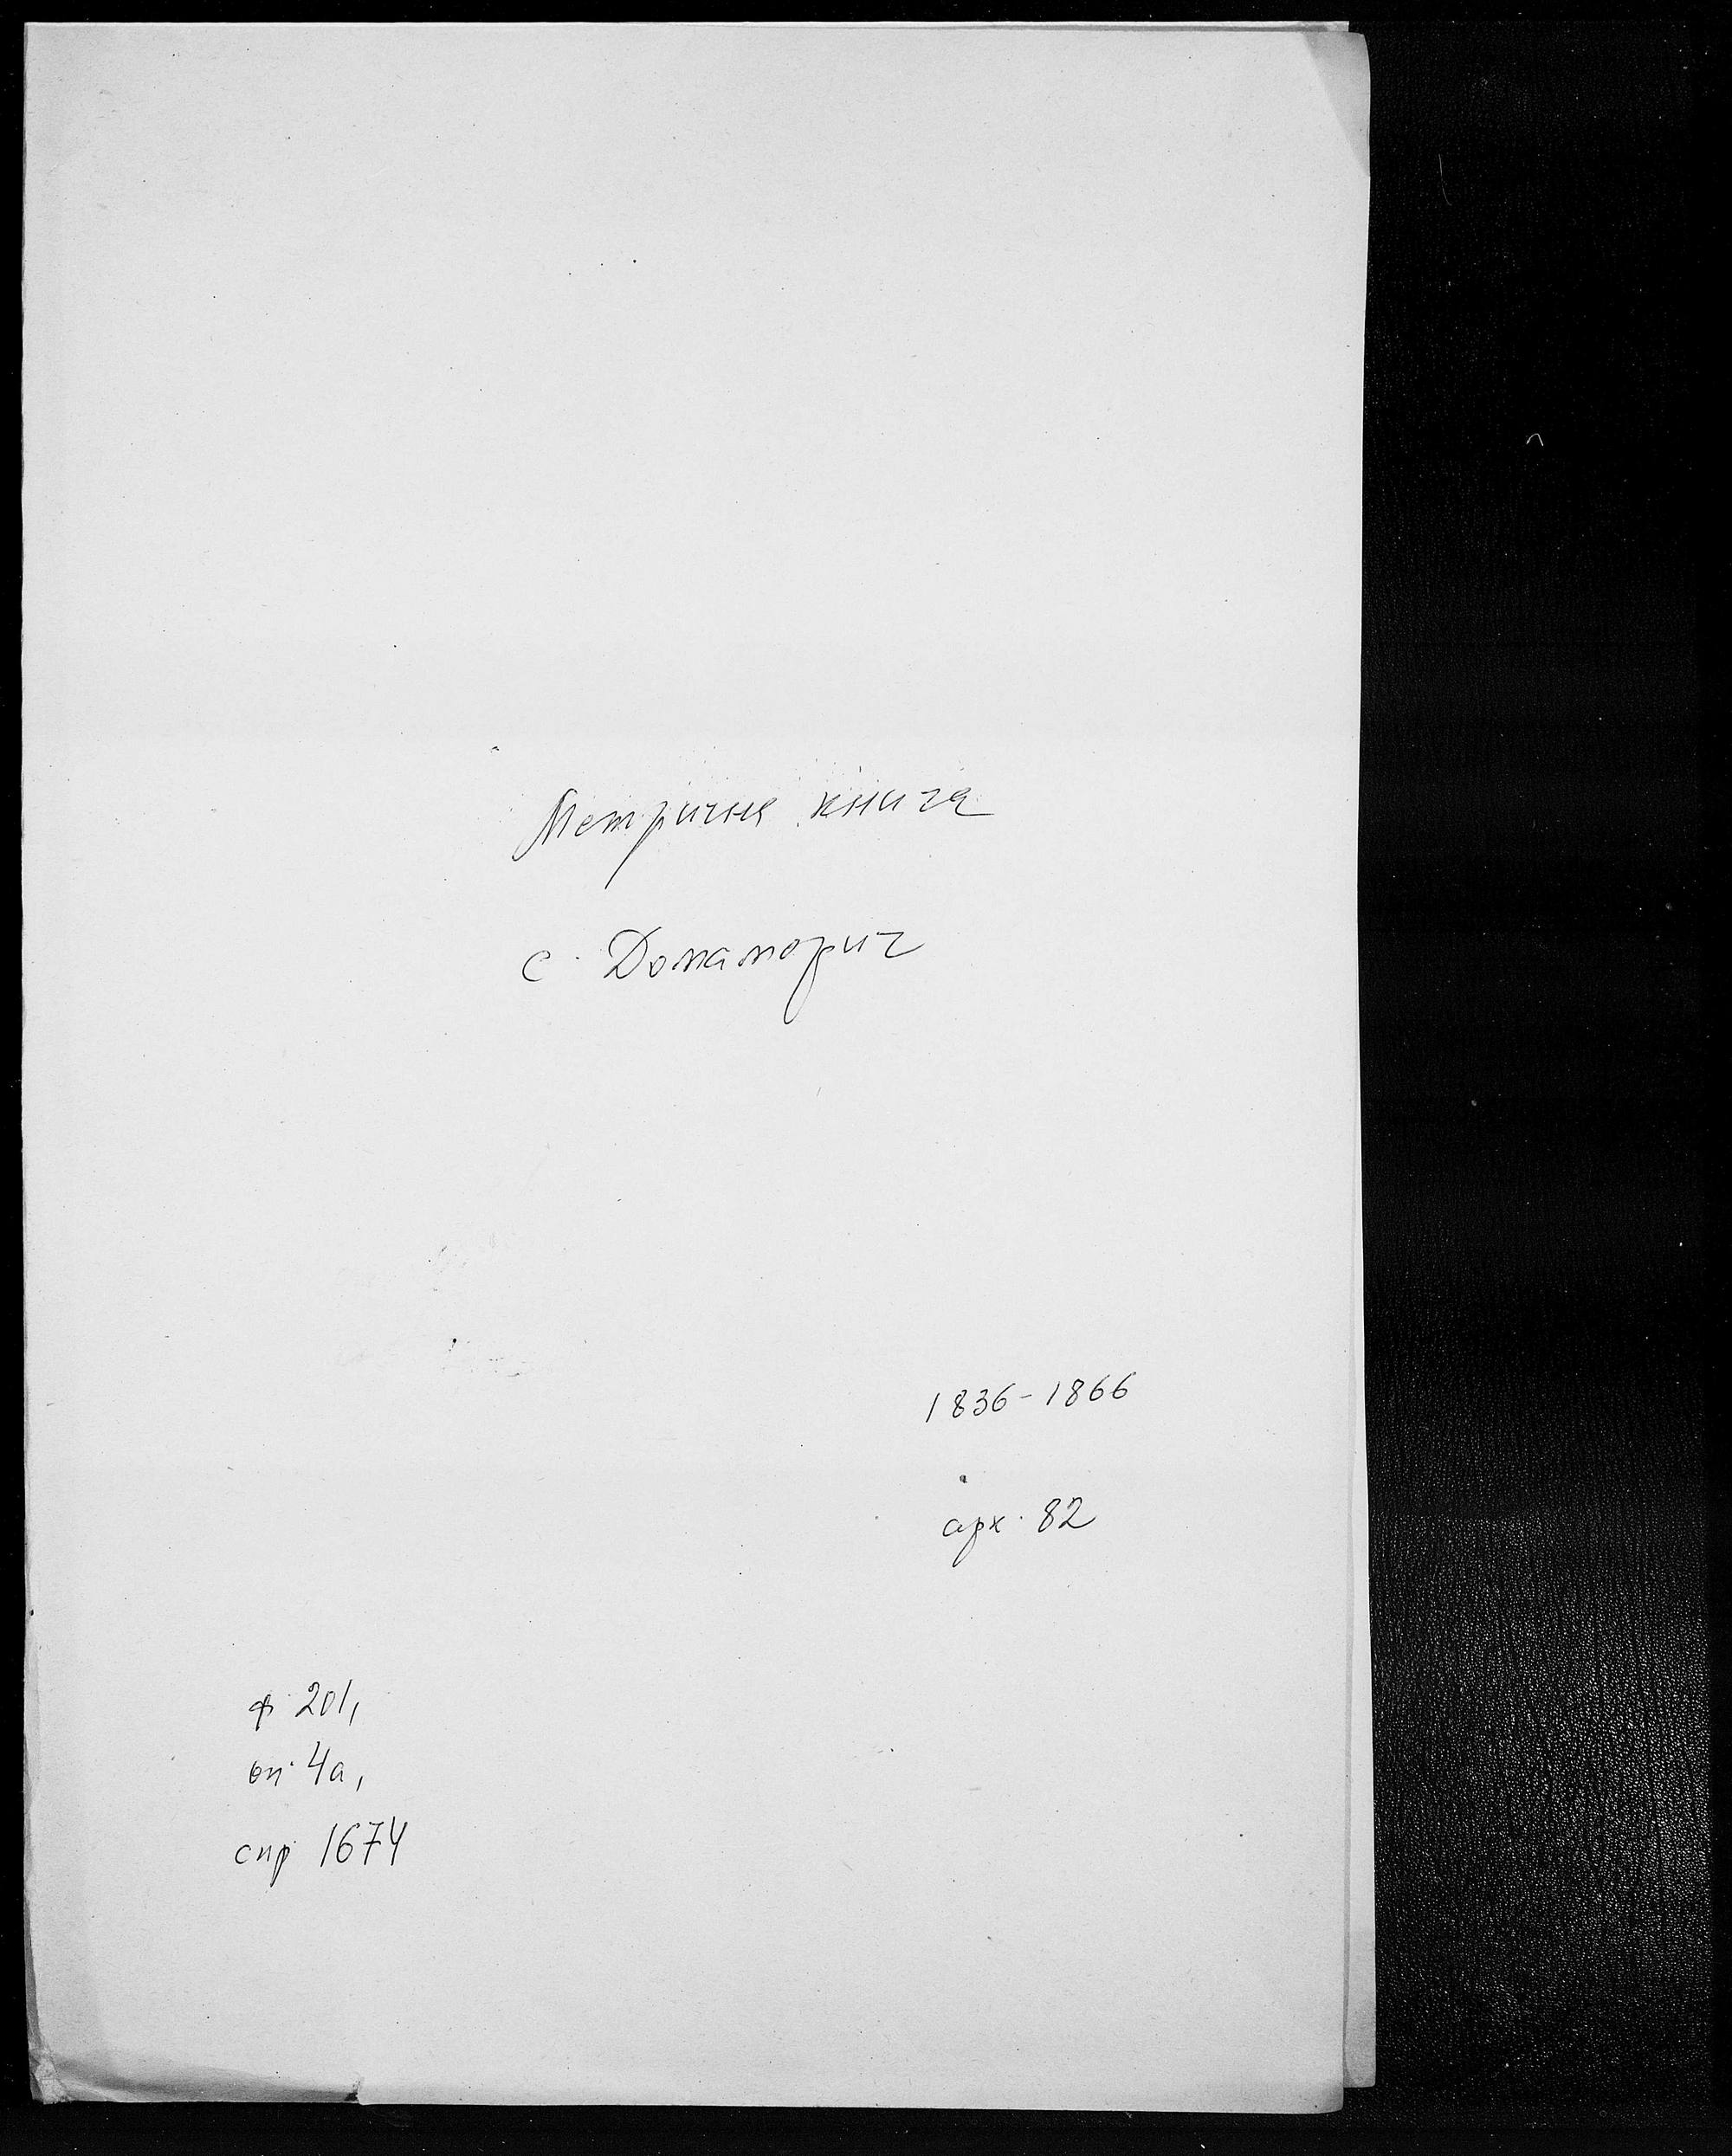 Метрична книга
с. Домаморич
1836-1866
арк. 82
ф. 201,
оп. 4а,
спр. 1674